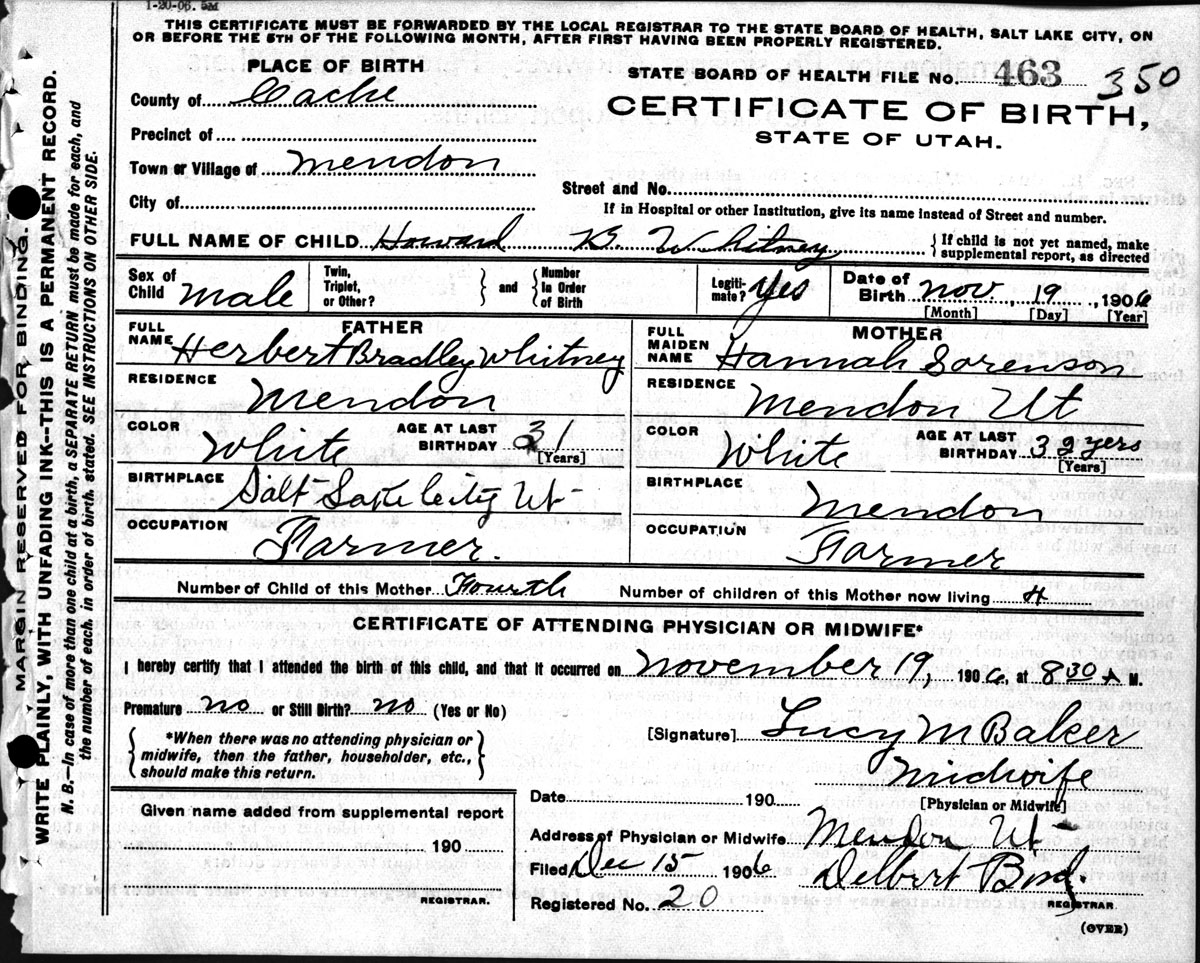 1-20-06. 5M
THIS CERTIFICATE MUST BE FORWARDED BY THE LOCAL REGISTRAR TO THE STATE BOARD OF HEALTH, SALT LAKE CITY, ON
OR BEFORE THE 5TH OF THE FOLLOWING MONTH, AFTER FIRST HAVING BEEN PROPERLY REGISTERED.
MARGIN RESERVED FOR BINDING.
WRITE PLAINLY, WITH UNFADING INK--THIS IS A PERMANENT RECORD.
N. B.—In case of more than one child at a birth, a SEPARATE RETURN must be made for each, and
the number of each, in order of birth, stated. SEE INSTRUCTIONS ON OTHER SIDE.
PLACE OF BIRTH
County of Cache
Precinct of
Town or Village of Mendon
City of
STATE BOARD OF HEALTH FILE No. 463 350
CERTIFICATE OF BIRTH,
STATE OF UTAH.
Street and No.
If in Hospital or other Institution, give its name instead of Street and number.
FULL NAME OF CHILD Howard Whitney { If child is not yet named, make
supplemental report, as directed
Sex of Child Male
Twin, Triplet, or Other? } and { Number In Order of Birth
Legiti-mate? Yes
Date of Birth Nov. , 19 , 1906
[Month] [Day] [Year]
FATHER
FULL NAME Herbert Bradley Whitney
RESIDENCE Mendon
COLOR White AGE AT LAST BIRTHDAY 31 [Years]
BIRTHPLACE Salt Lake City Ut
OCCUPATION Farmer.
MOTHER
FULL MAIDEN NAME Hannah Sorenson
RESIDENCE Mendon Ut
COLOR White AGE AT LAST BIRTHDAY yers [Years]
BIRTHPLACE Mendon
OCCUPATION Farmer
Number of Child of this Mother Fourth Number of children of this Mother now living 4
CERTIFICATE OF ATTENDING PHYSICIAN OR MIDWIFE*
I hereby certify that I attended the birth of this child, and that it occurred on November 19, 1906, at 8 30 A M.
Premature no or Still Birth? no (Yes or No)
{ *When there was no attending physician or
midwife, then the father, householder, etc.,
should make this return. }
[Signature] Lucy M Baker
Midwife
Date 190 [Physician or Midwife]
Given name added from supplemental report
190
REGISTRAR.
Address of Physician or Midwife Mendon Ut
Filed Dec 15 1906 Delbert
Registered No. 20 REGISTRAR.
(OVER)